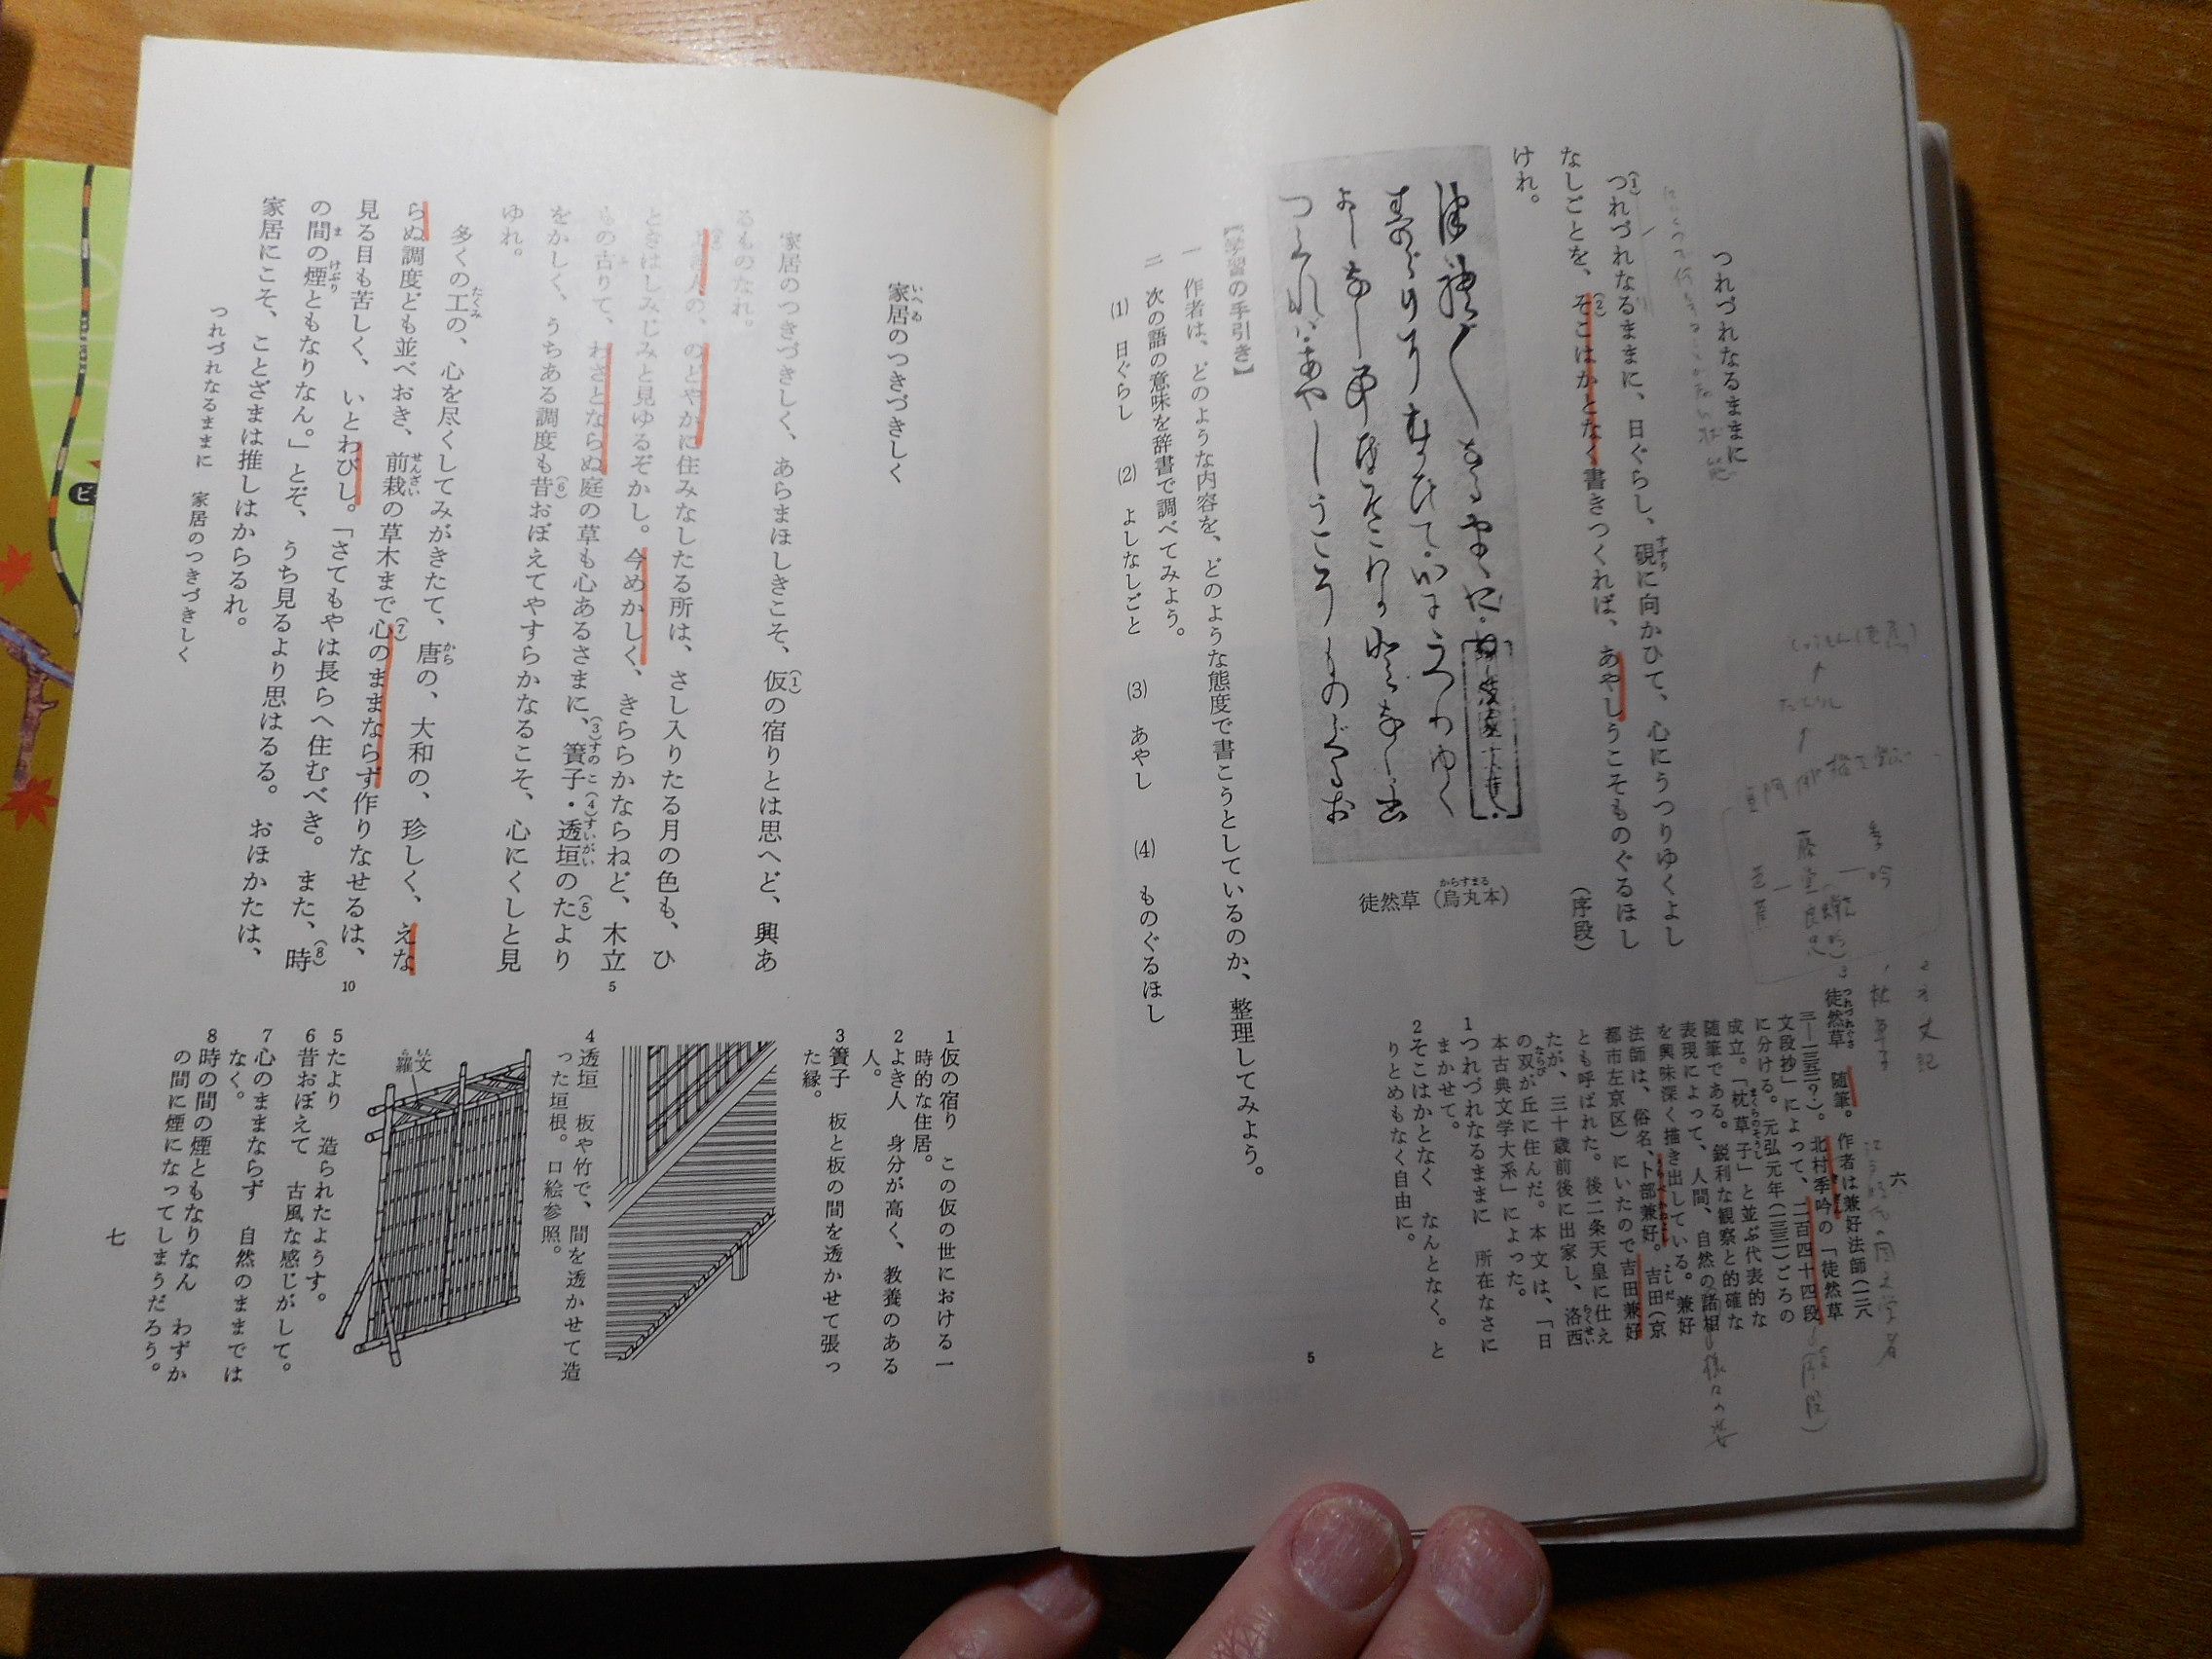 つれづれなるままに
つれづれなるままに、日ぐらし、硯に向かひて、心にうつりゆくよし
なしごとを、そこはかとなく書きつくれば、あやしうこそものぐるほし
けれ。
（序段）
徒然草（烏丸本）
【学習の手引き】
一　作者は、どのような内容を、どのような態度で書こうとしているのか、整理してみよう。
二　次の語の意味を辞書で調べてみよう。
(1)　日ぐらし　(2)　よしなしごと　(3)　あやし　(4)　ものぐるほし
徒然草　随筆。作者は兼好法師（一二八
三―一三五二？）。北村季吟の「徒然草
文段抄」によって、二百四十四段
に分ける。元弘元年（一三三一）ごろの
成立。「枕草子」と並ぶ代表的な
随筆である。鋭利な観察と的確な
表現によって、人間、自然の諸相
を興味深く描き出している。兼好
法師は、俗名、卜部兼好。吉田（京
都市左京区）にいたので吉田兼好
とも呼ばれた。後二条天皇に仕え
たが、三十歳前後に出家し、洛西
の双が丘に住んだ。本文は、「日
本古典文学大系」によった。
1 つれづれなるままに　所在なさに
まかせて。
2 そこはかとなく　なんとなく。と
りとめもなく自由に。
5
六
家居のつきづきしく
家居のつきづきしく、あらまほしきこそ、仮の宿りとは思へど、興あ
るものなれ。
よき人の、のどやかに住みなしたる所は、さし入りたる月の色も、ひ
ときはしみじみと見ゆるぞかし。今めかしく、きららかならねど、木立
もの古りて、わざとならぬ庭の草も心あるさまに、簀子・透垣のたより
をかしく、うちある調度も昔おぼえてやすらかなるこそ、心にくしと見
ゆれ。
多くの工の、心を尽くしてみがきたて、唐の、大和の、珍しく、えな
らぬ調度ども並べおき、前栽の草木まで心のままならず作りなせるは、
見る目も苦しく、いとわびし。「さてもやは長らへ住むべき。また、時
の間の煙ともなりなん。」とぞ、うち見るより思はるる。おほかたは、
家居にこそ、ことざまは推しはからるれ。
5
10
1 仮の宿り　この仮の世における一
時的な住居。
2 よき人　身分が高く、教養のある
人。
3 簀子　板と板の間を透かせて張っ
た縁。
4 透垣　板や竹で、間を透かせて造
った垣根。口絵参照。
羅文
5 たより　造られたようす。
6 昔おぼえて　古風な感じがして。
7 心のままならず　自然のままでは
なく。
8 時の間の煙ともなりなん　わずか
の間に煙になってしまうだろう。
つれづれなるままに　家居のつきづきしく
七